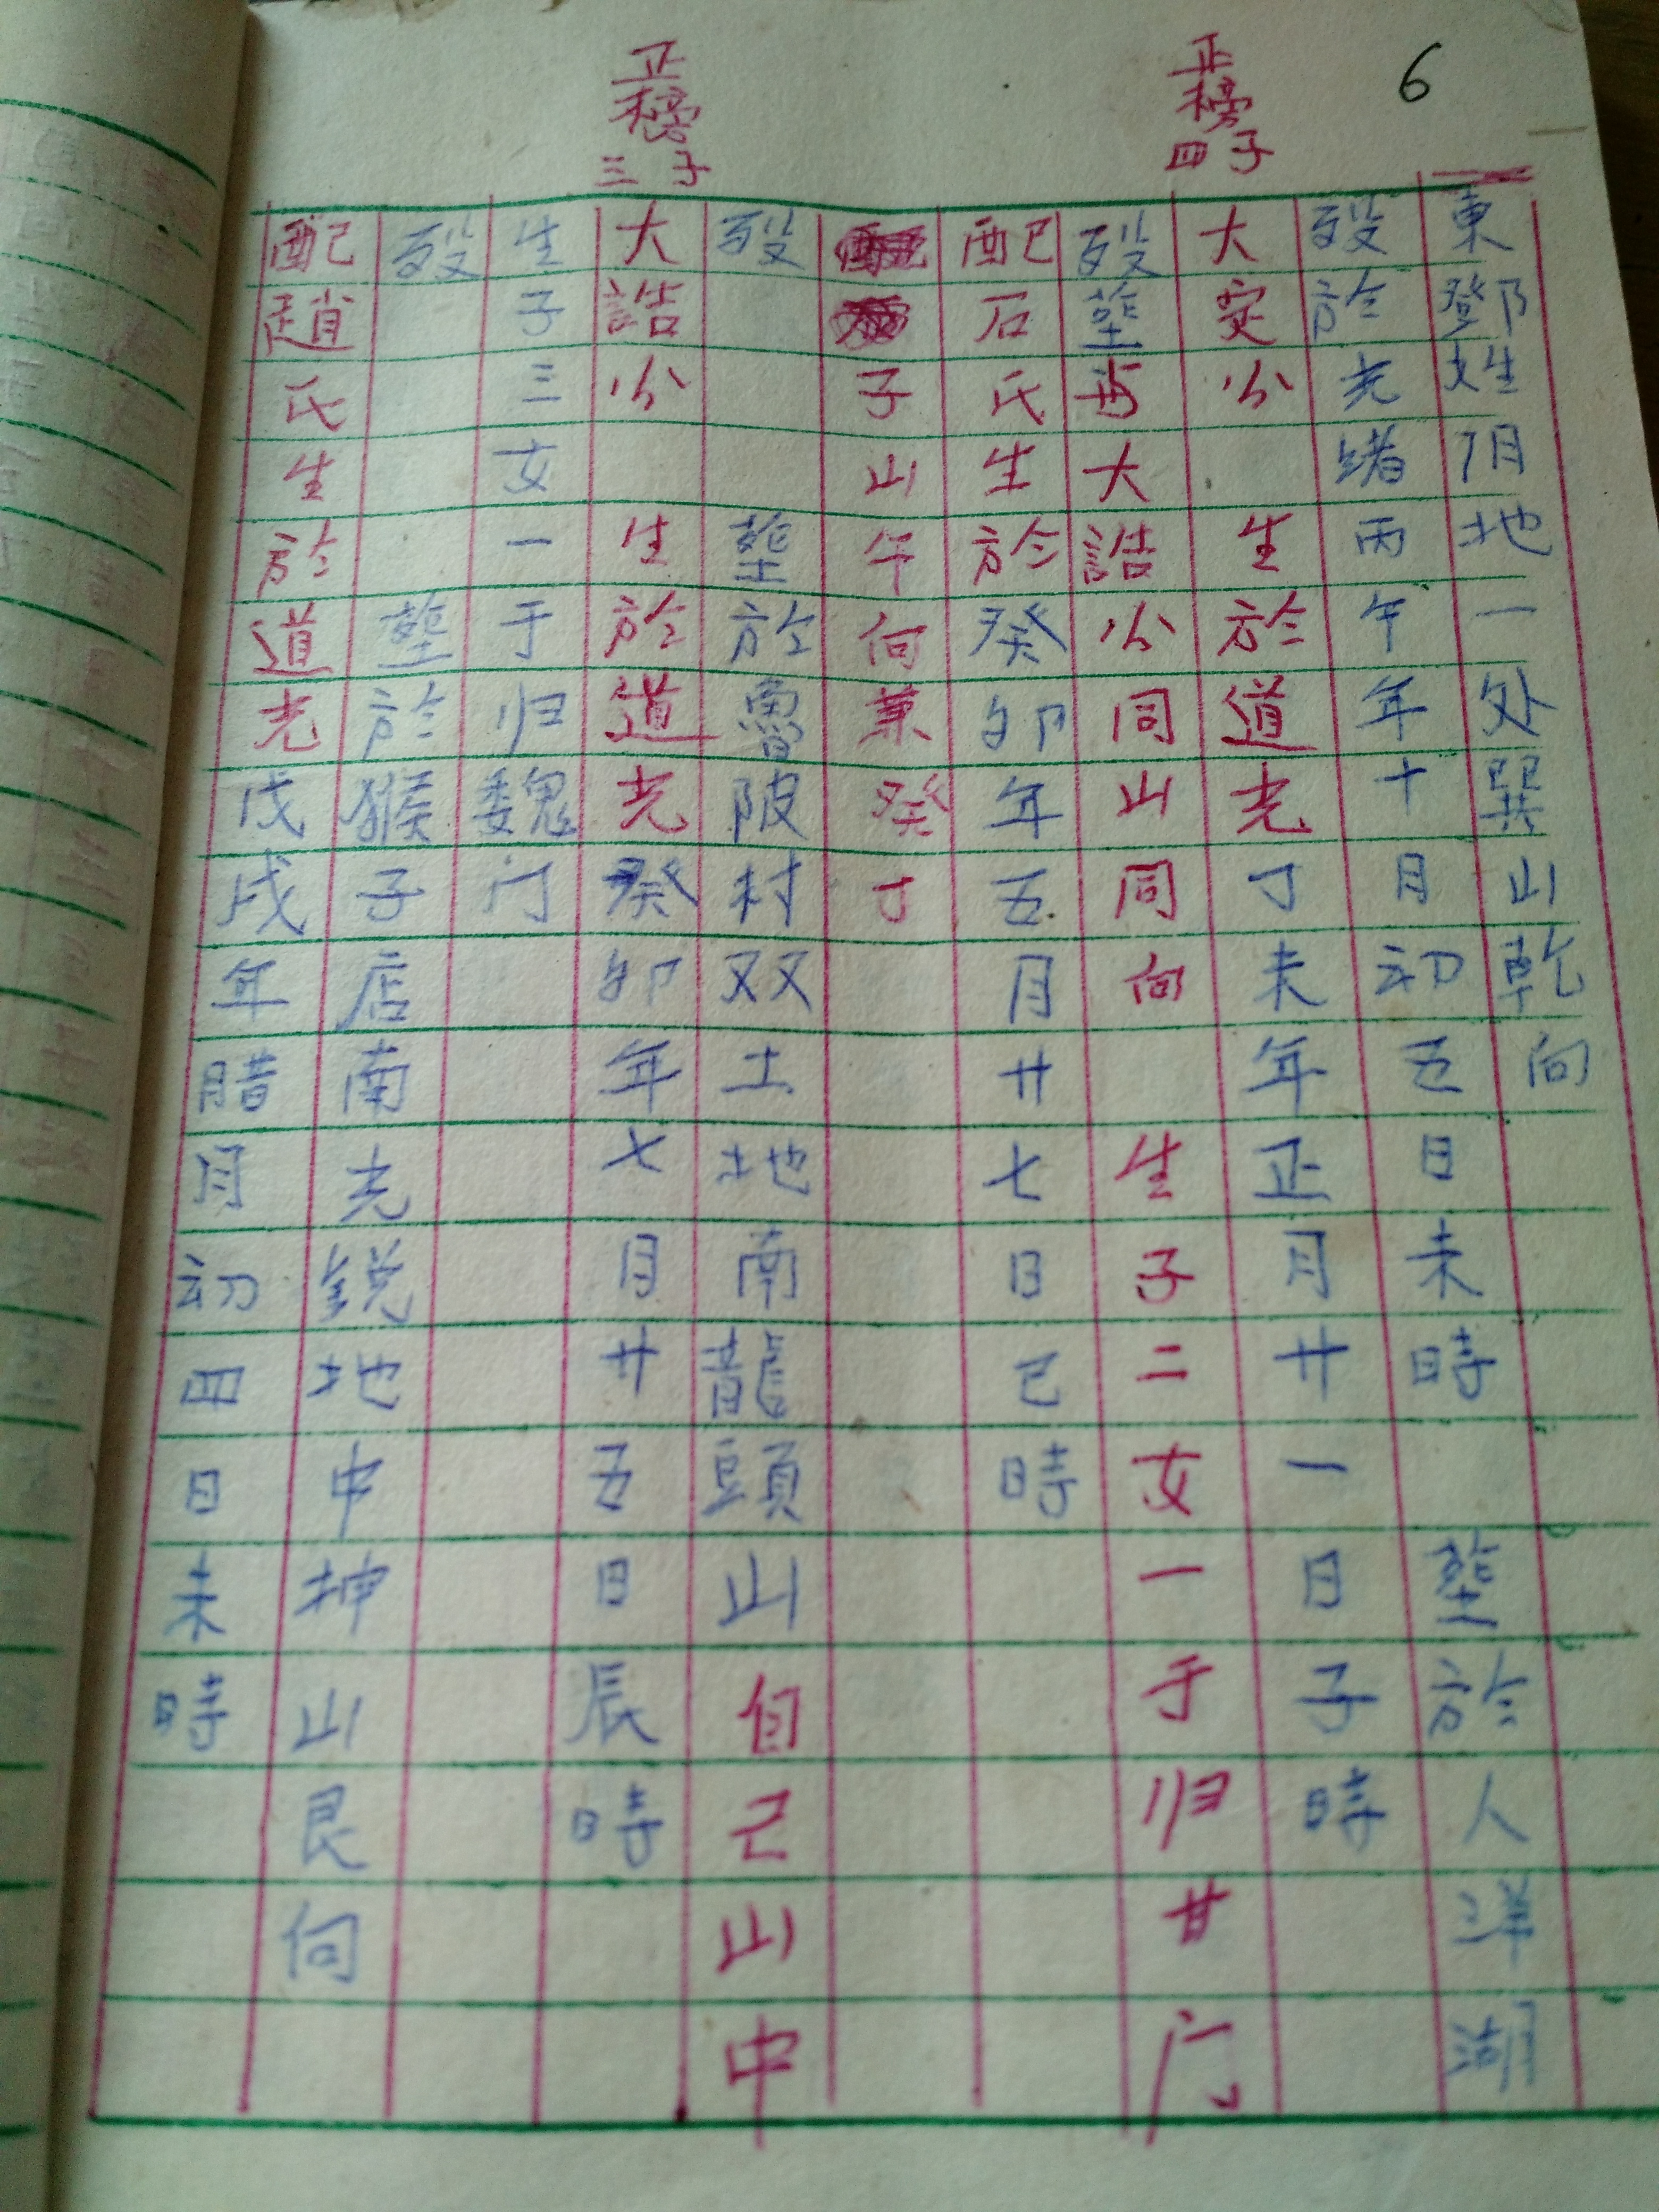 6
正榜四子
正榜三子
東鄧姓阴地一处巽山乾向
殁於光绪丙午年十月初五日未時 塟於人洋湖
大定公 生於道光丁未年正月廿一日子時
殁塟与大誥公同山同向 生子二女一于归甘门
配石氏生於癸卯年五月廿七日巳時
子山午向兼癸丁
殁 塟於魯陂村双土地南龍頭山自己山中
大誥公 生於道光癸卯年七月廿五日辰時
生子三女一于归魏门
殁 塟於猴子店南光銳地中坤山艮向
配趙氏生於道光戊戌年腊月初四日未時